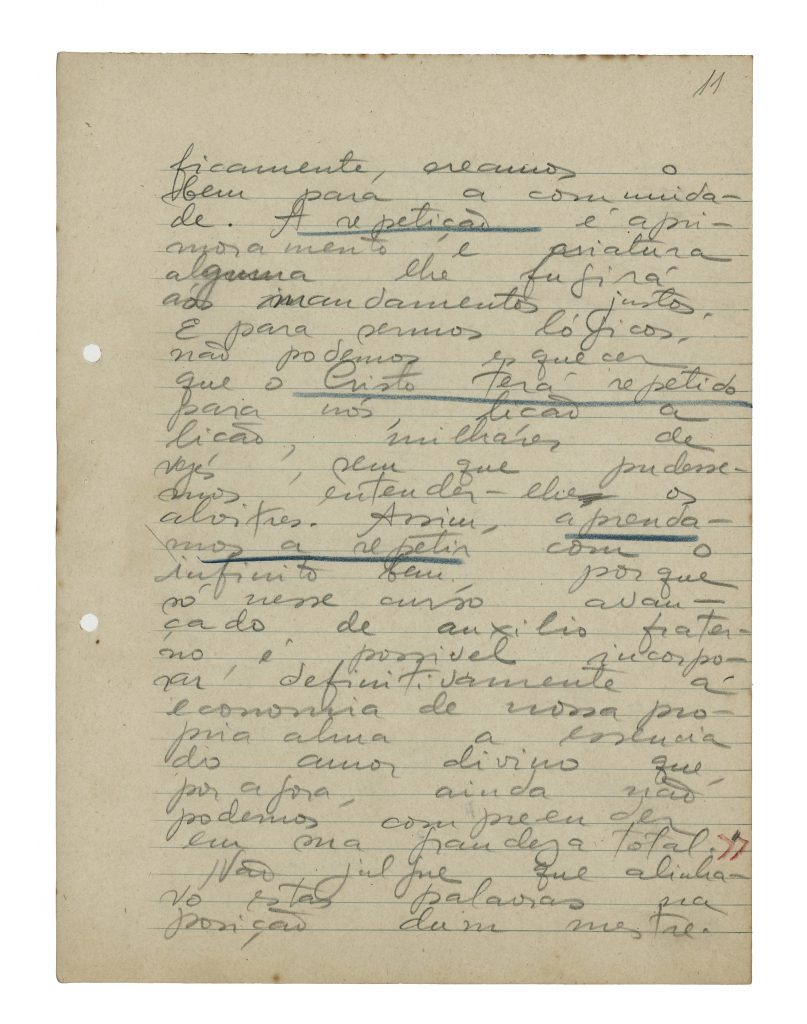 11
ficamente, creamos o
bem para a communida-
de. A repetição é apri-
moramento e criatura
alguma lhe fugirá
aos mandamentos justos.
E para sermos lógicos,
não podemos esquecer
que o Cristo terá repetido
para nós, lição a
lição, milháres de
vezes, sem que pudesse-
mos entender-lhe os
alvitres. Assim, aprenda-
mos a repetir com o
infinito bem, porque
só nesse curso avan-
çado de auxilio frater-
no, é possivel incorpo-
rar definitivamente á
economia de nossa pro-
pria alma a essencia
do amor divino que,
por agora, ainda não
podemos compreender
em sua grandeza total."
Não julgue que alinha-
vo estas palavras na
posição dum mestre.